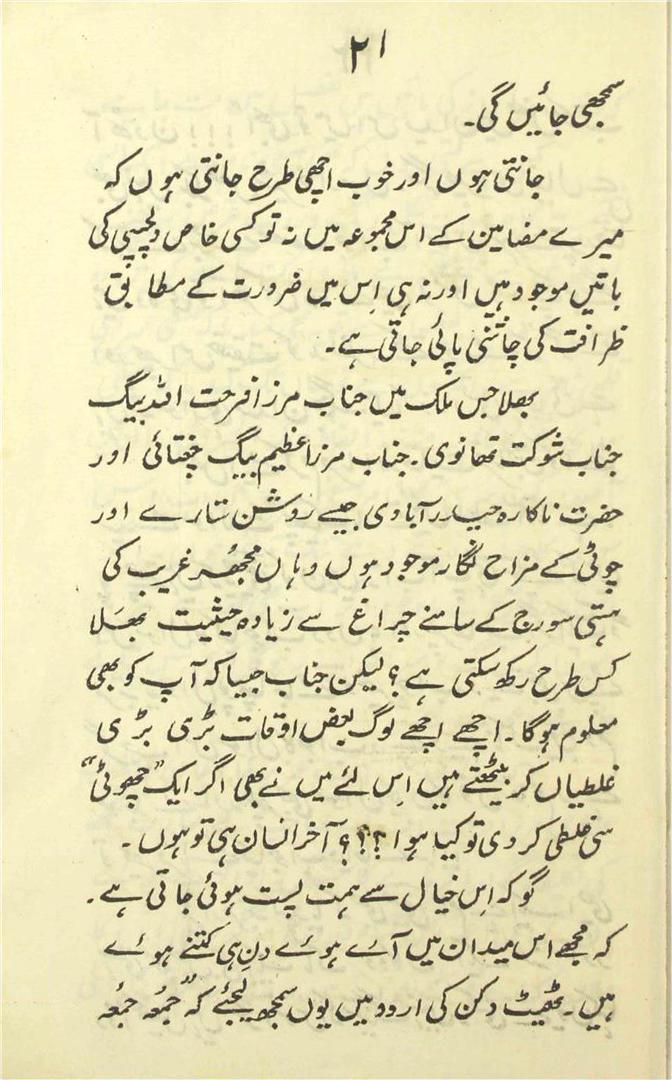 ۲۱
سمجھی جائیں گی۔
جانتی ہوں اور خوب اچھی طرح جانتی ہوں کہ
میرے مضامین کے اس مجموعہ میں نہ تو کسی خاص دلچسپی کی
باتیں موجود ہیں اور نہ ہی اِس میں ضرورت کے مطابق
ظرافت کی چاشنی پائی جاتی ہے۔
بھلا جس ملک میں جناب مرزا فرحت اللہ بیگ
جناب شوکت تھانوی۔ جناب مرزا عظیم بیگ چغتائی اور
حضرت ناکارہ حیدرآبادی جیسے روشن ستارے اور
چوٹی کے مزاح نگار موجود ہوں وہاں مجھ غریب کی
ہستی سورج کے سامنے چراغ سے زیادہ حیثیت بھلا
کس طرح رکھ سکتی ہے؟ لیکن جناب جیسا کہ آپ کو بھی
معلوم ہوگا۔ اچھے اچھے لوگ بعض اوقات بڑی بڑی
غلطیاں کر بیٹھتے ہیں اِس لئے میں نے بھی اگر ایک "چھوٹی"
سی غلطی کر دی تو کیا ہوا؟؟؟ آخر انسان ہی تو ہوں۔
گو کہ اِس خیال سے ہمت پست ہوئی جاتی ہے۔
کہ مجھے اس میدان میں آئے ہوئے دن ہی کتنے ہوئے
ہیں۔ ٹھیٹ دکن کی اردو میں یوں سمجھ لیجئے کہ "جمُعہ جمُعہ